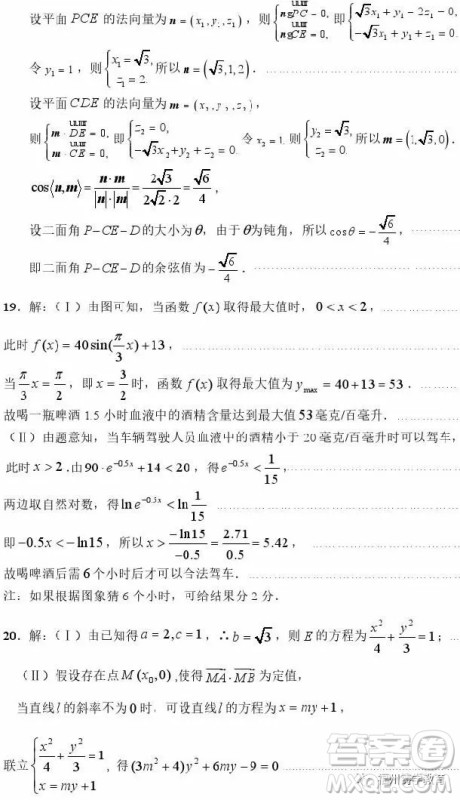 设平面 PCE 的法向量为 n = (x₁, y₁, z₁)，则 { n·PC = 0, n·CE = 0, 即 { √3x₁ + y₁ − 2z₁ = 0, −√3x₁ + y₁ + z₁ = 0.
令 y₁ = 1，则 { x₁ = √3, z₁ = 2. 所以 n = (√3, 1, 2).
设平面 CDE 的法向量为 m = (x₂, y₂, z₂)，
则 { m · DE = 0, m · CE = 0, 即 { z₂ = 0, −√3x₂ + y₂ + z₂ = 0. 令 x₂ = 1, 则 { y₂ = √3, z₂ = 0. 所以 m = (1, √3, 0).
cos⟨n, m⟩ = n·m / |n|·|m| = 2√3 / 2√2·2 = √6 / 4，
设二面角 P−CE−D 的大小为 θ，由于 θ 为钝角，所以 cosθ = −√6/4，
即二面角 P−CE−D 的余弦值为 −√6/4．
19．解：（Ⅰ）由图可知，当函数 f(x) 取得最大值时，0 < x < 2，
此时 f(x) = 40sin(π/3 x) + 13，
当 π/3 x = π/2，即 x = 3/2 时，函数 f(x) 取得最大值为 y_max = 40 + 13 = 53．
故喝一瓶啤酒 1.5 小时血液中的酒精含量达到最大值 53 毫克/百毫升．
（Ⅱ）由题意知，当车辆驾驶人员血液中的酒精小于 20 毫克/百毫升时可以驾车，
此时 x > 2．由 90·e^(−0.5x) + 14 < 20，得 e^(−0.5x) < 1/15，
两边取自然对数，得 ln e^(−0.5x) < ln 1/15
即 −0.5x < −ln15，所以 x > −ln15/−0.5 = 2.71/0.5 = 5.42，
故喝啤酒后需 6 个小时后才可以合法驾车．
注：如果根据图象猜 6 个小时，可给结果分 2 分．
20．解：（Ⅰ）由已知得 a = 2, c = 1，∴ b = √3，则 E 的方程为 x²/4 + y²/3 = 1；
（Ⅱ）假设存在点 M(x₀, 0)，使得 MA · MB 为定值，
当直线 l 的斜率不为 0 时，可设直线 l 的方程为 x = my + 1，
联立 { x²/4 + y²/3 = 1, x = my + 1，得 (3m² + 4)y² + 6my − 9 = 0